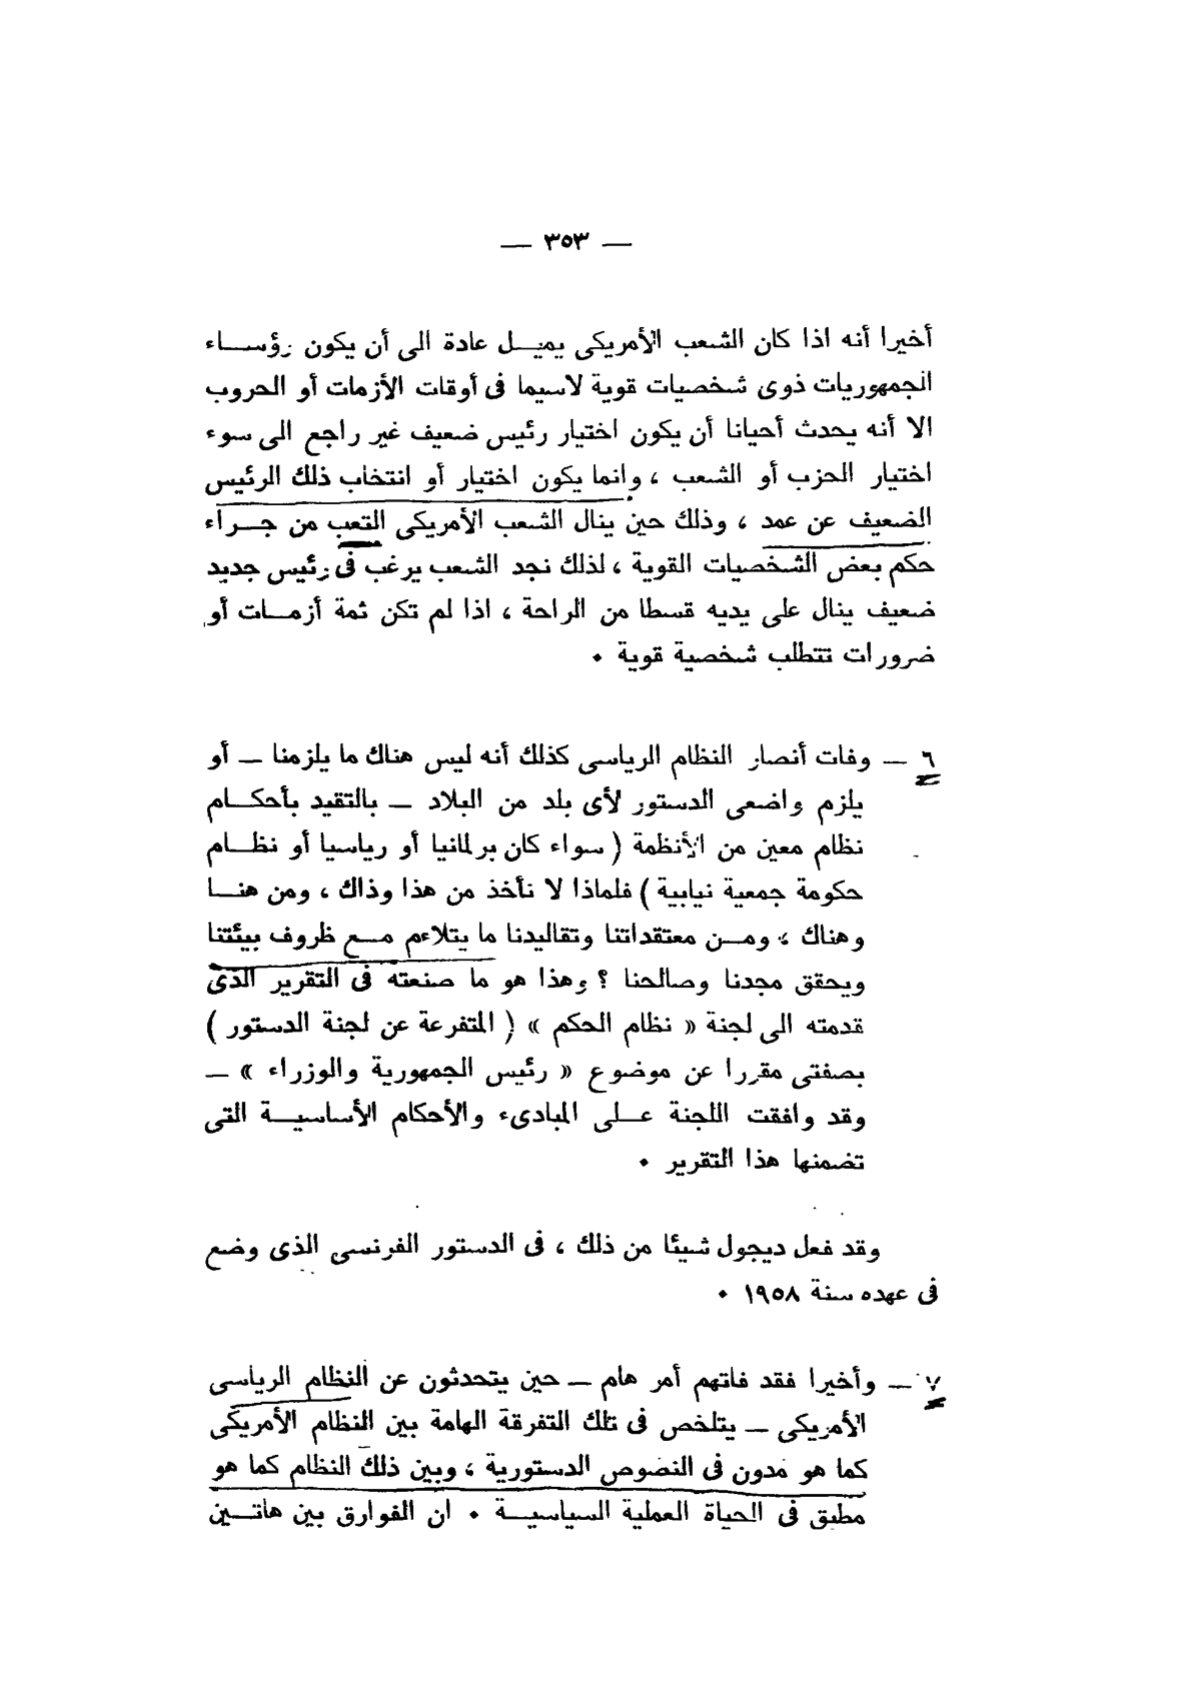 — ٣٥٣ —
أخيرا أنه اذا كان الشعب الأمريكى يميـــل عادة الى أن يكون رؤســـاء
الجمهوريات ذوى شخصيات قوية لاسيما فى أوقات الأزمات أو الحروب
الا أنه يحدث أحيانا أن يكون اختيار رئيس ضعيف غير راجع الى سوء
اختيار الحزب أو الشعب ، وانما يكون اختيار أو انتخاب ذلك الرئيس
الضعيف عن عمد ، وذلك حين ينال الشعب الأمريكى التعب من جـــراء
حكم بعض الشخصيات القوية ، لذلك نجد الشعب يرغب فى رئيس جديد
ضعيف ينال على يديه قسطا من الراحة ، اذا لم تكن ثمة أزمـــات أو
ضرورات تتطلب شخصية قوية ٠
٦ — وفات أنصار النظام الرياسى كذلك أنه ليس هناك ما يلزمنا — أو
يلزم واضعى الدستور لأى بلد من البلاد — بالتقيد بأحكـــام
نظام معين من الأنظمة ( سواء كان برلمانيا أو رياسيا أو نظـــام
حكومة جمعية نيابية ) فلماذا لا نأخذ من هذا وذاك ، ومن هنـــا
وهناك ، ومـــن معتقداتنا وتقاليدنا ما يتلاءم مـــع ظروف بيئتنا
ويحقق مجدنا وصالحنا ؟ وهذا هو ما صنعته فى التقرير الذى
قدمته الى لجنة « نظام الحكم » ( المتفرعة عن لجنة الدستور )
بصفتى مقررا عن موضوع « رئيس الجمهورية والوزراء » —
وقد وافقت اللجنة عـــلى المبادىء والأحكام الأساسيـــة التى
تضمنها هذا التقرير ٠
وقد فعل ديجول شيئا من ذلك ، فى الدستور الفرنسى الذى وضع
فى عهده سنة ١٩٥٨ ٠
٧ — وأخيرا فقد فاتهم أمر هام — حين يتحدثون عن النظام الرياسى
الأمريكى — يتلخص فى تلك التفرقة الهامة بين النظام الأمريكى
كما هو مدون فى النصوص الدستورية ، وبين ذلك النظام كما هو
مطبق فى الحياة العملية السياسيـــة ٠ ان الفوارق بين هاتـــين